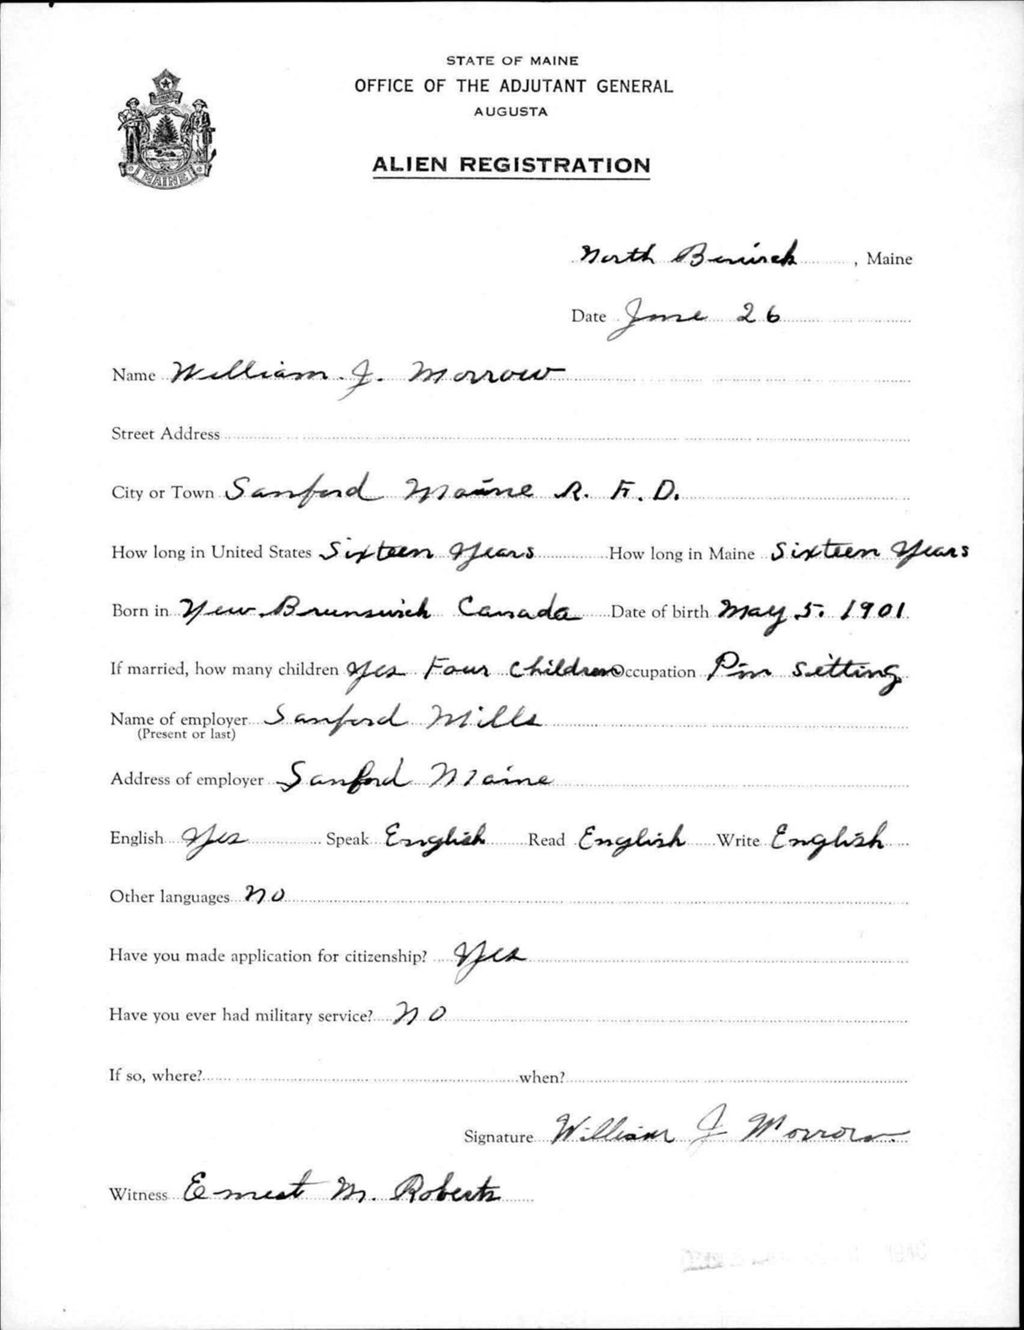 STATE OF MAINE
OFFICE OF THE ADJUTANT GENERAL
AUGUSTA
ALIEN REGISTRATION
MAINE
North Berwick, Maine
Date June 26
Name William J. Morrow
Street Address
City or Town Sanford Maine R. F. D.
How long in United States Sixteen Years How long in Maine Sixteen Years
Born in New Brunswick Canada Date of birth May 5. 1901
If married, how many children Yes Four Children Occupation Pin Sitting
Name of employer Sanford Mills
(Present or last)
Address of employer Sanford Maine
English Yes Speak English Read English Write English
Other languages No
Have you made application for citizenship? Yes
Have you ever had military service? No
If so, where? when?
Signature William J Morrow
Witness Ernest M. Roberts